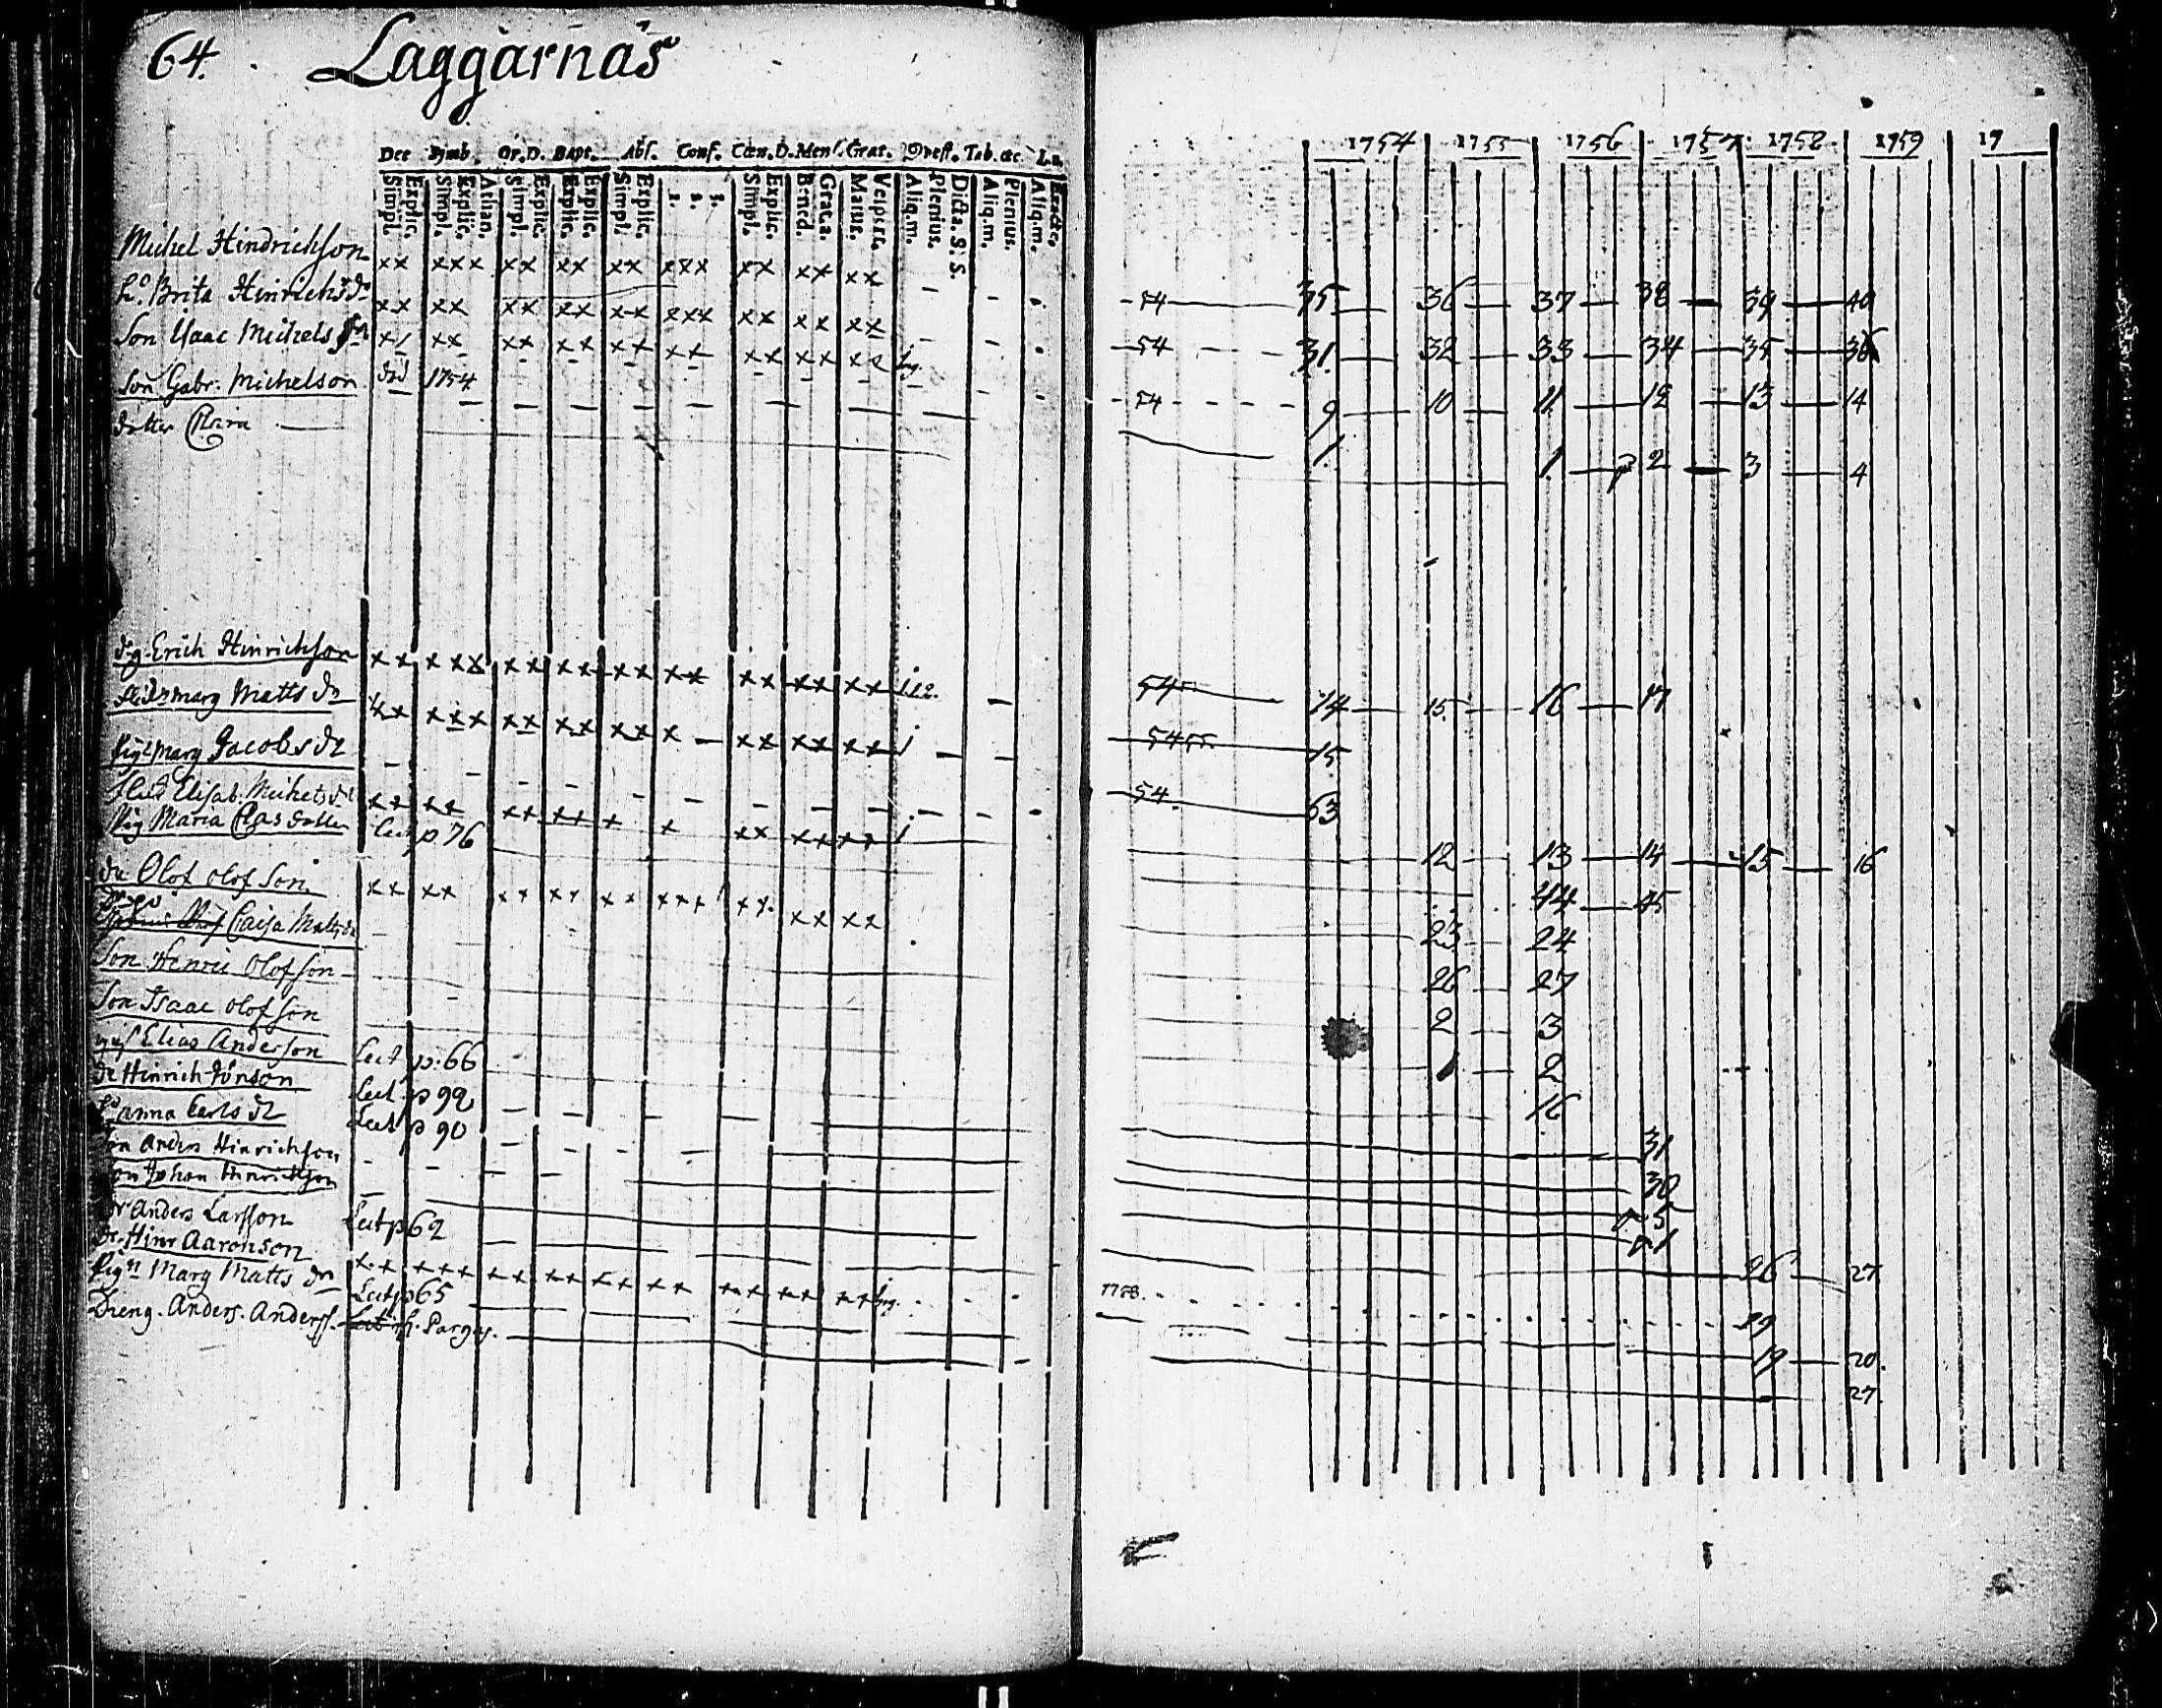 64. Laggarnäs
Dec Symb. Or.D. Bapt. Abs. Conf. Cœn.D. Mens. Grat. Quest. Tab. &c.
Simpl. Explic. Simpl. Explic. Athan. Simpl. Explic. Explic. Explic. Simpl. Explic. 1. 2. 3. Simpl. Explic. Bened. Grat.a. Matut. Vespert. Aliq.m. Plenius. Dicta. S.S. Aliq.m. Plenius. Aliq.m. Exacte.
1754 1755 1756 1757 1758 1759 17
Michel Hindrichson xx xxx xx xx xx xxx xx xx xx
54 35 36 37 38 39 40
h:o Brita Hinrichsdr xx xx xx xx xx xxx xx xx xx
54 31 32 33 34 35 36
Son Isaac Michelsson xx xx xx xx xx xx xx xx
54 9 10 11 12 13 14
Son Gabr. Michelson död 1754
1
dotter
1 2 3 4
dg Erich Hinrichson xx xxx xx xx xx xx xx xx xx
54 14 15 16 17
marg Matts dr xx xxx xx xx xx x xx xx xx
54 55 15
Pig marg Jacobs dr
54 63
Elisab. Michels dr xx xx xx xx x x xx xx xx
12 13 14 15 16
Pig Maria Clas dotter Lect p 76
44 45
dr Olof olofson xx xx xx xx xx xxx xx xx xx
23 24
Caisa Matts dr
26 27
Son Henric Olofson
2 3
Son Isaac olofson
1 2
Elias Anderson Lect p. 66
16
dr Hinrich Lect p 99
31
anna Carls dr Lect p 90
30
Son Anders Hinrichson
5
Son Johan Hinrichson
1
dr Anders Larsson Lect p 62
26 27
Dr. Hinr Aaronson xx xxx xx xx xx xx xx xx xx
1758 29
Pig:n Marg Matts dr Lect p 65
19 20.
Dreng. Anders. Anderss. Parges.
27.